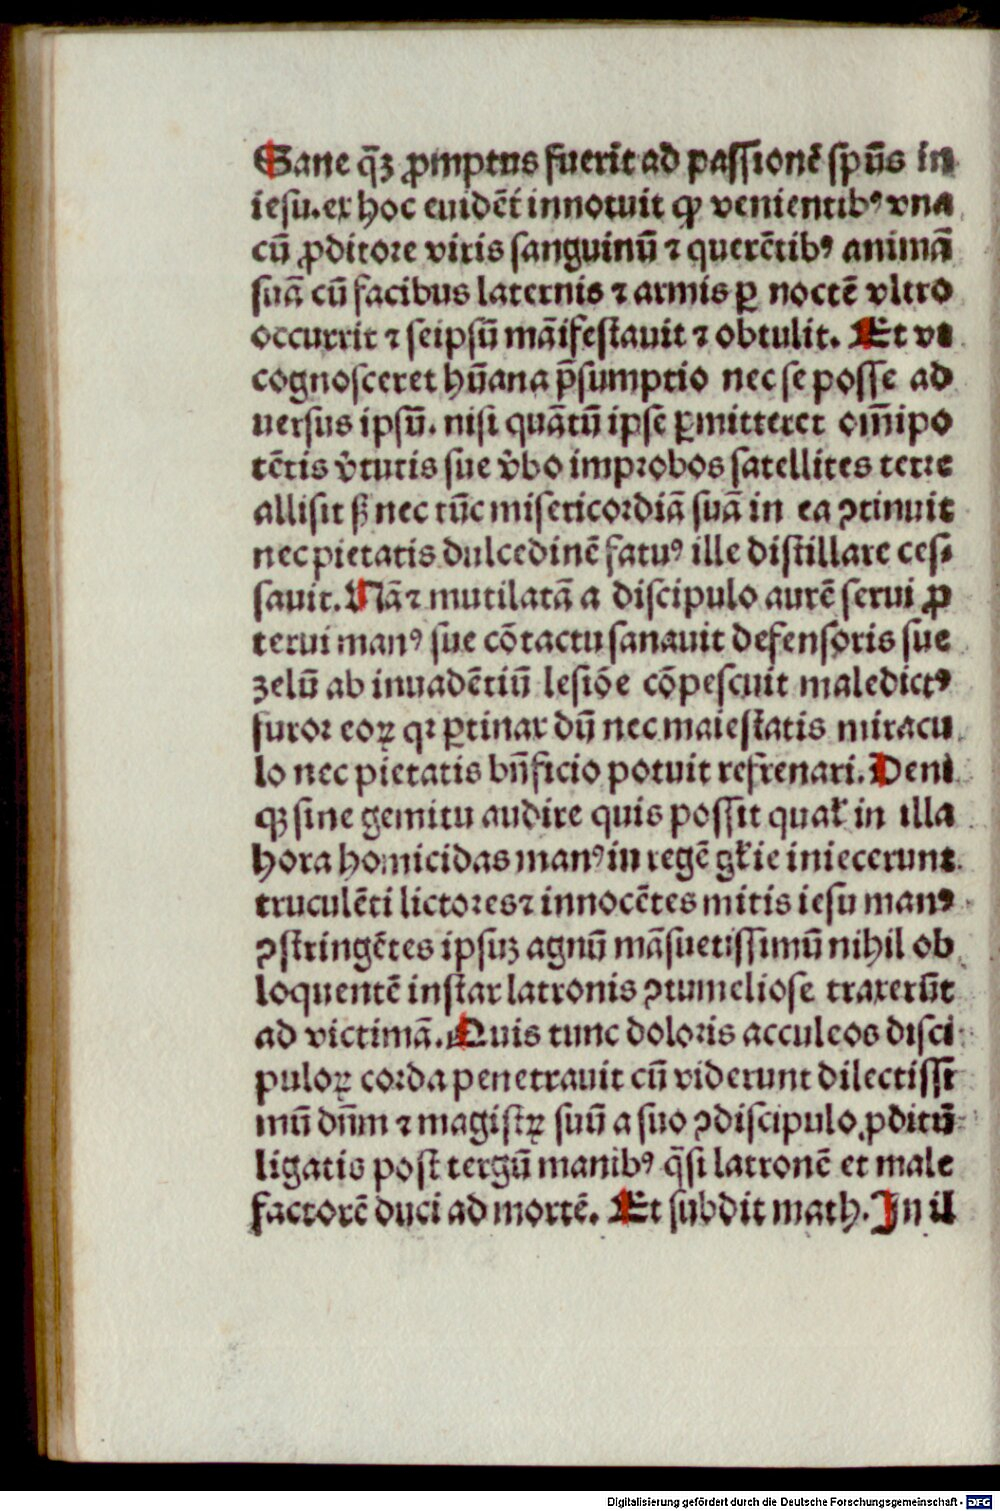 Sane q̄ꝫ ꝓmptus fuerit ad passionē spūs in
iesu. ex hoc euidēt̄ innotuit ꝙ venientibꝰ vna
cū ꝓditore viris sanguinū ⁊ querētibꝰ animā
suā cū facibus laternis ⁊ armis ꝑ noctē vltro
occurrit ⁊ seipsū māifestauit ⁊ obtulit. Et vt
cognosceret hūana p̄sumptio nec se posse ad
uersus ipsū. nisi quātū ipse ꝑmitteret om̄ipo
tētis v̓tutis sue v̓bo improbos satellites terre
allisit sꝫ nec tūc misericordiā suā in ea ꝯtinuit
nec pietatis dulcedinē fatuꝰ ille distillare ces⸗
sauit. Nā ⁊ mutilatā a discipulo aurē serui ꝓ
terui manꝰ sue cōtactu sanauit defensoris sue
zelū ab inuadētiū lesiōe cōpescuit maledictꝰ
furor eoꝝ qꝛ ꝑtinax dū nec maiestatis miracu
lo nec pietatis bn̄ficio potuit refrenari. Deni
qꝫ sine gemitu audire quis possit qual̓r in illa
hora homicidas manꝰ in regē gl̓ie iniecerunt
truculēti lictores ⁊ innocētes mitis iesu manꝰ
ꝯstringētes ipsuꝫ agnū māsuetissimū nihil ob
loquentē instar latronis ꝯtumeliose traxerūt
ad victimā. Quis tunc doloris acculeos disci
puloꝝ corda penetrauit cū viderunt dilectissi
mū dn̄m ⁊ magistꝝ suū a suo ꝯdiscipulo ꝓditū
ligatis post tergū manibꝰ q̄si latronē et male
factorē duci ad mortē. Et subdit math. In il
Digitalisierung gefördert durch die Deutsche Forschungsgemeinschaft - DFG